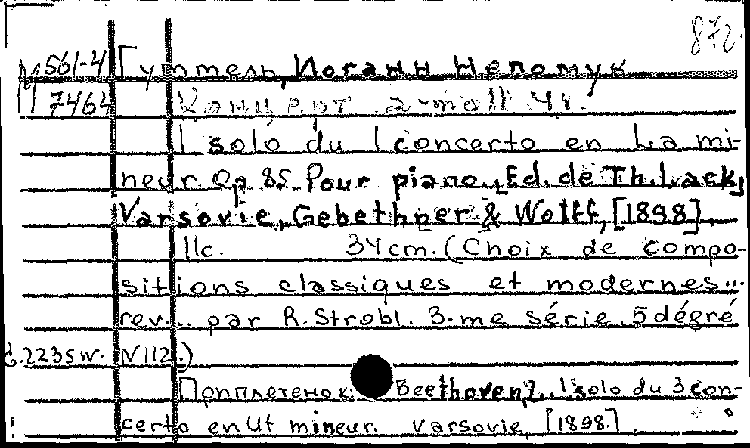 872.
М 561-4 Гуммель, Иоганн Непомук
П 7464 Концерт a-moll ч1.
1 solo du 1 concerto en La mi-
neur Op. 85. Pour piano. Ed. de Th. Lack,
Varsovie, Gebethner & Wolff, [1898].
11c. 34cm. (Choix de compo-
sitions classiques et modernes...
rev... par R. Strobl. 3-me série. 5 dégré
2235w. N112.)
Приплетенок: Beethoven, 1 solo du 3 con-
certo en Ut mineur. Varsovie, [1898].